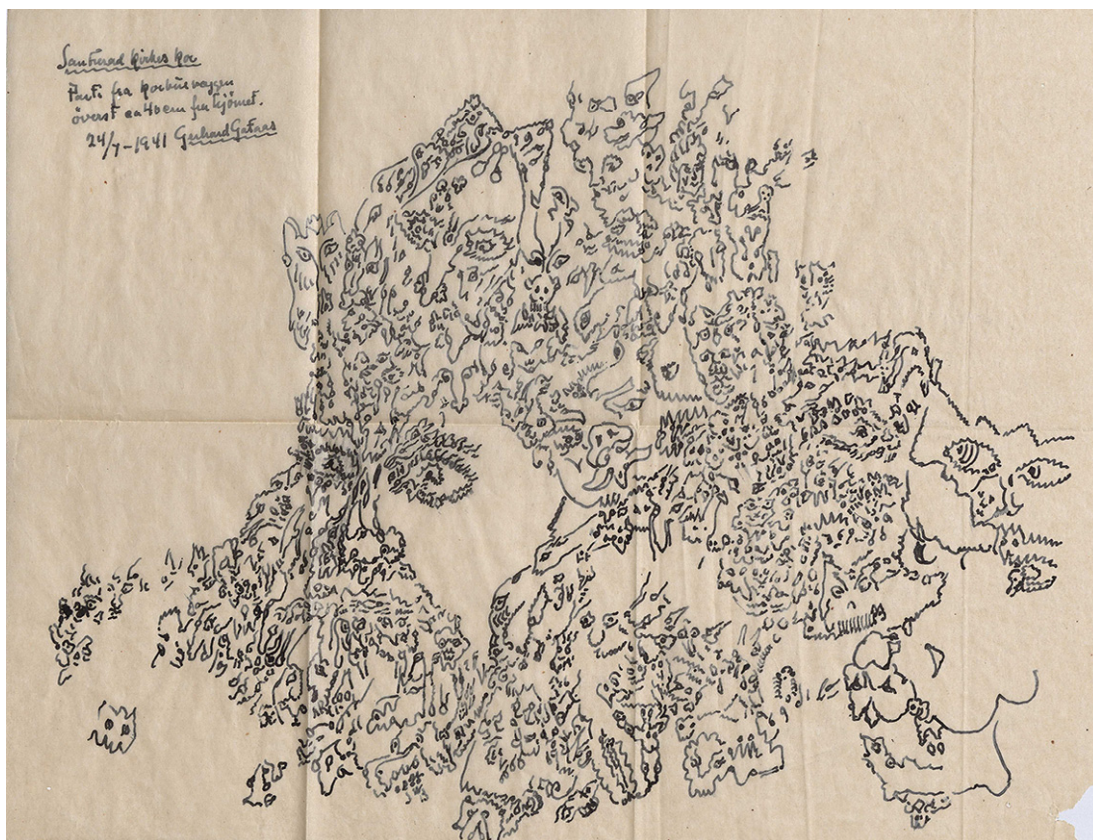 Sauherad Kirkes Kor
Parti fra Korbueveggen
överst ca 40 cm fra hjörnet.
24/7-1941 Gerhard Gotaas